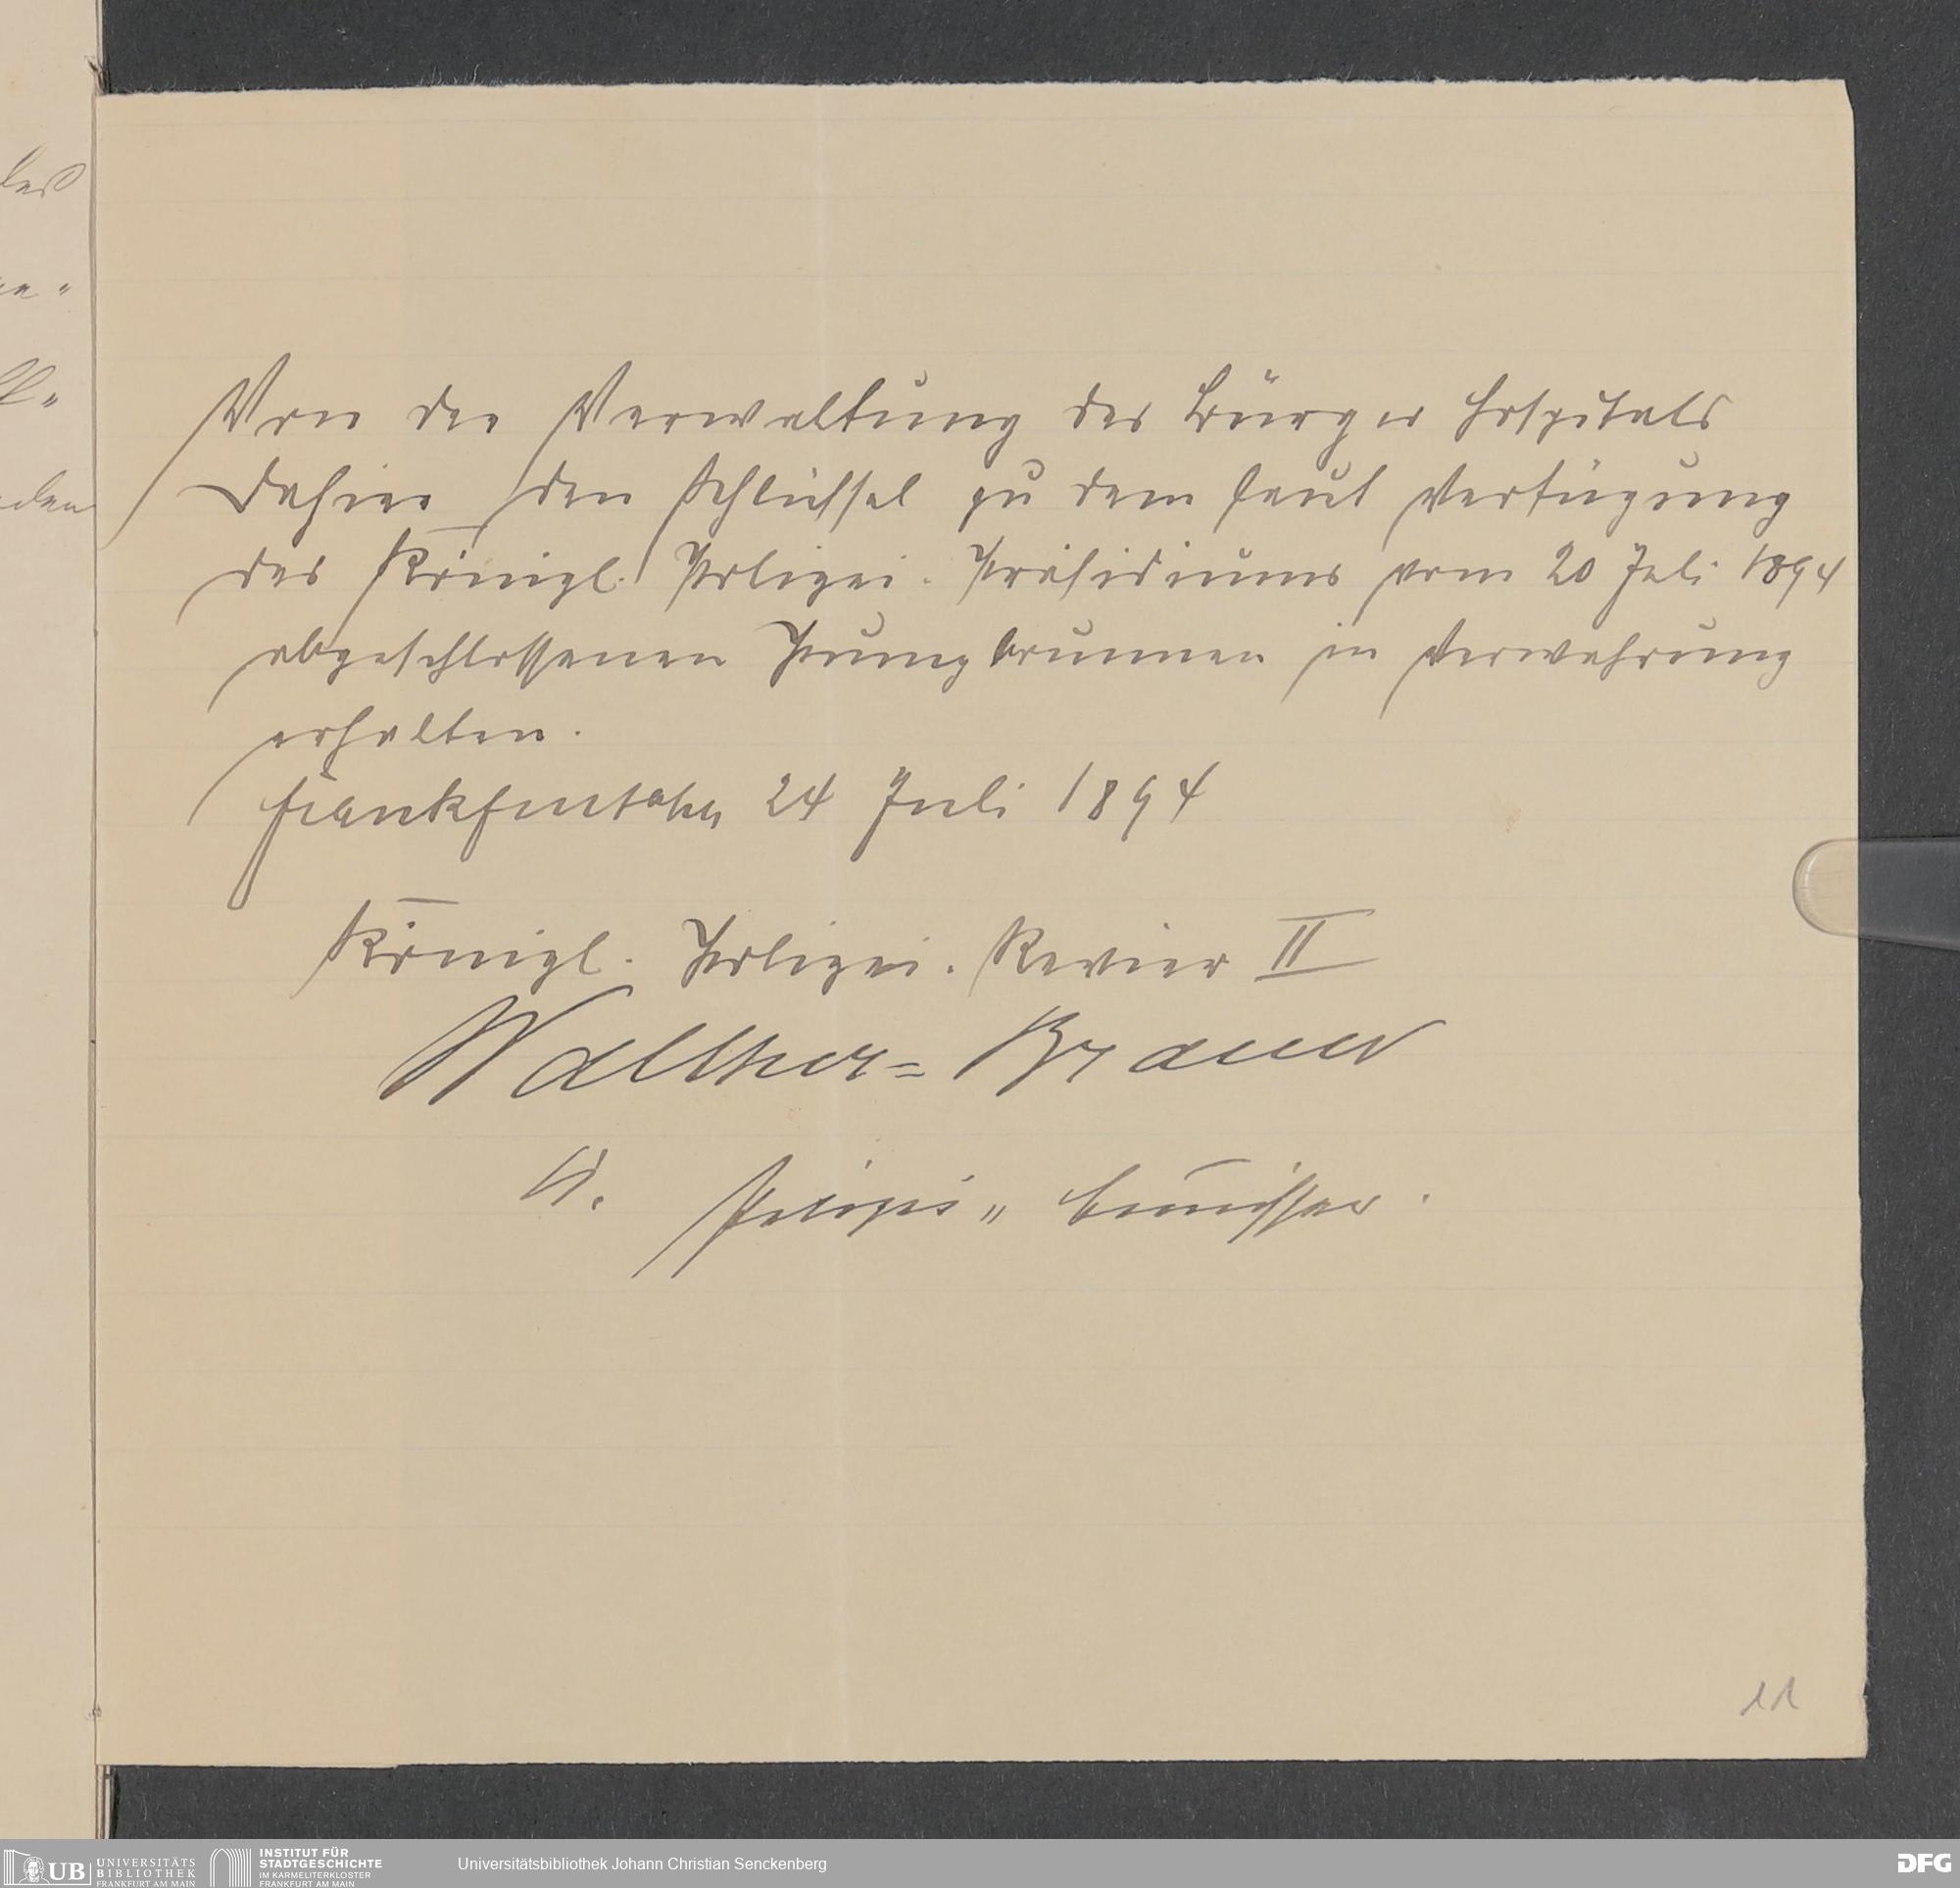 Von der Verwaltung des Bürger Hospitals
dahier den Schlüssel zu dem laut Verfügung
des Königl. Polizei-Präsidiums vom 20 Juli 1894
abgeschlossenen Pumpbrunnen in Verwahrung
erhalten.
Frankfurt a/M, 24 Juli 1894
Königl. Polizei-Revier II
Walther-Braun
K. Polizei-Comissar.
11
UB UNIVERSITÄTS
BIBLIOTHEK
FRANKFURT AM MAIN
INSTITUT FÜR
STADTGESCHICHTE
IM KARMELITERKLOSTER
FRANKFURT AM MAIN
Universitätsbibliothek Johann Christian Senckenberg
DFG